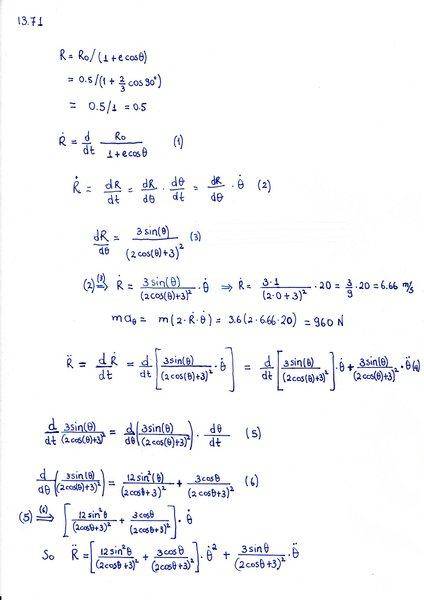 13.71
R = R₀/(1+ecosθ)
= 0.5/(1+ 2/3 cos90°)
= 0.5/1 = 0.5
Ṙ = d/dt R₀/(1+ecosθ) (1)
Ṙ = dR/dt = dR/dθ · dθ/dt = dR/dθ · θ̇ (2)
dR/dθ = 3sin(θ)/(2cos(θ)+3)² (3)
(2) (3)⇒ Ṙ = 3sin(θ)/(2cos(θ)+3)² · θ̇ ⇒ Ṙ = 3·1/(2·0+3)² · 20 = 3/9 · 20 = 6.66 m/s
maθ = m(2·Ṙ·θ̇) = 3.6(2·6.66·20) = 960 N
R̈ = dṘ/dt = d/dt [3sin(θ)/(2cos(θ)+3)² · θ̇] = d/dt [3sin(θ)/(2cos(θ)+3)²] · θ̇ + 3sin(θ)/(2cos(θ)+3)² · θ̈ (4)
d/dt 3sin(θ)/(2cos(θ)+3)² = d/dθ (3sin(θ)/(2cos(θ)+3)²) · dθ/dt (5)
d/dθ (3sin(θ)/(2cos(θ)+3)²) = 12sin²(θ)/(2cosθ+3)² + 3cosθ/(2cosθ+3)² (6)
(5) (6)⇒ [12sin²θ/(2cosθ+3)² + 3cosθ/(2cosθ+3)²] · θ̇
So R̈ = [12sin²θ/(2cosθ+3)² + 3cosθ/(2cosθ+3)²] · θ̇² + 3sinθ/(2cosθ+3)² · θ̈